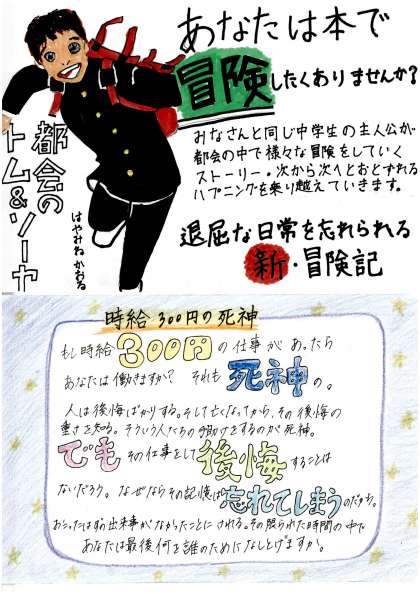 あなたは本で
冒険したくありませんか?
みなさんと同じ中学生の主人公が
都会の中で様々な冒険をしていく
ストーリー・次から次へとおとずれる
ハプニングを乗り越えていきます。
退屈な日常を忘れられる
新・冒険記
都会の
トム&ソーヤ
はやみねかおる
時給300円の死神
もし時給300円の仕事があったら
あなたは働きますか? それも死神の。
人は後悔ばかりする。そして亡くなってから、その後悔の
重さを知る。そういう人たちの手助けをするのが死神。
でもその仕事をして後悔することは
ないだろう。なぜならその記憶は忘れてしまうのだから。
おこったはずの出来事がなかったことにされる。その限られた時間の中で
あなたは最後何を誰のためになしとげますか。